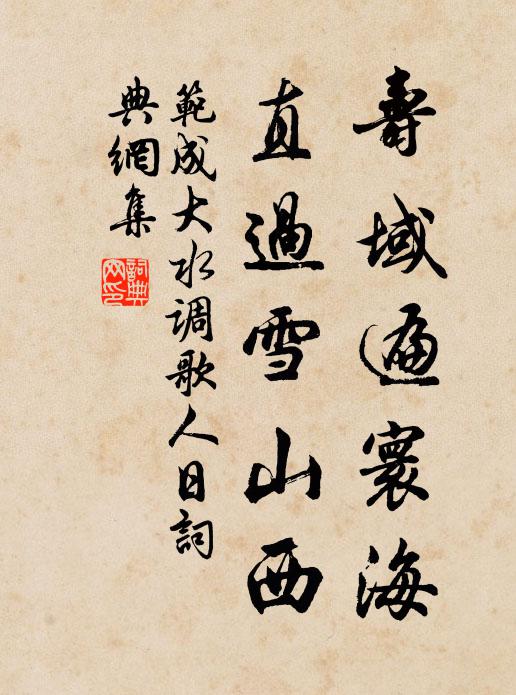 壽域遍寰海
直過雪山西
範成大水调歌人日詞
典網集
詞典
网印